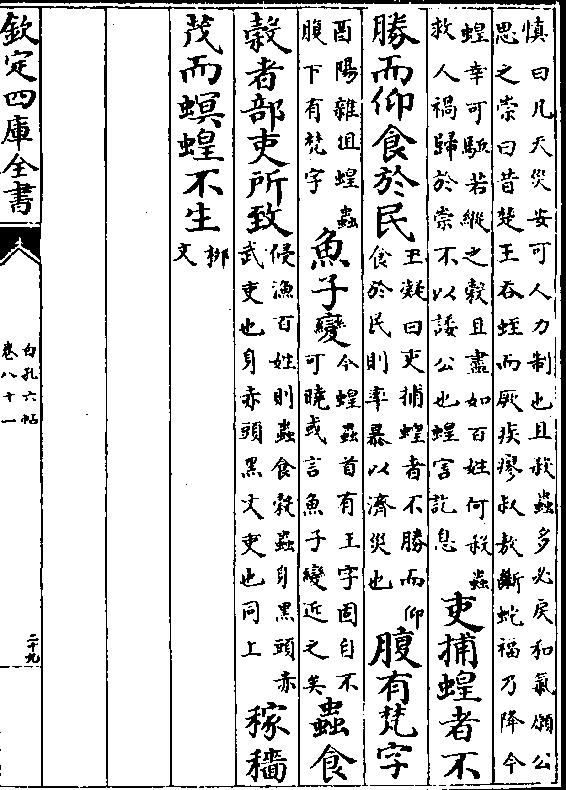 慎曰凡天災安可人力制也且殺蟲多必戾和氣願公
思之崇曰昔楚王吞蛭而厥疾瘳叔敖斷蛇福乃降今
蝗幸可驅若縱之穀且盡如百姓何殺蟲
救人禍歸於崇不以諉公也蝗害訖息
吏捕蝗者不
勝而仰食於民
王凝曰吏捕蝗者不勝而仰
食於民則率暴以濟災也
腹有梵字
酉陽雜俎蝗蟲
腹下有梵字
魚子變
今蝗蟲首有王字固自不
可曉或言魚子變近之矣
蟲食
穀者部吏所致
侵漁百姓則蟲食穀蟲身黑頭赤
武吏也身赤頭黑文吏也同上
稼穡
茂而螟蝗不生
栁
文
欽定四庫全書
白孔六帖
卷八十一
二十九